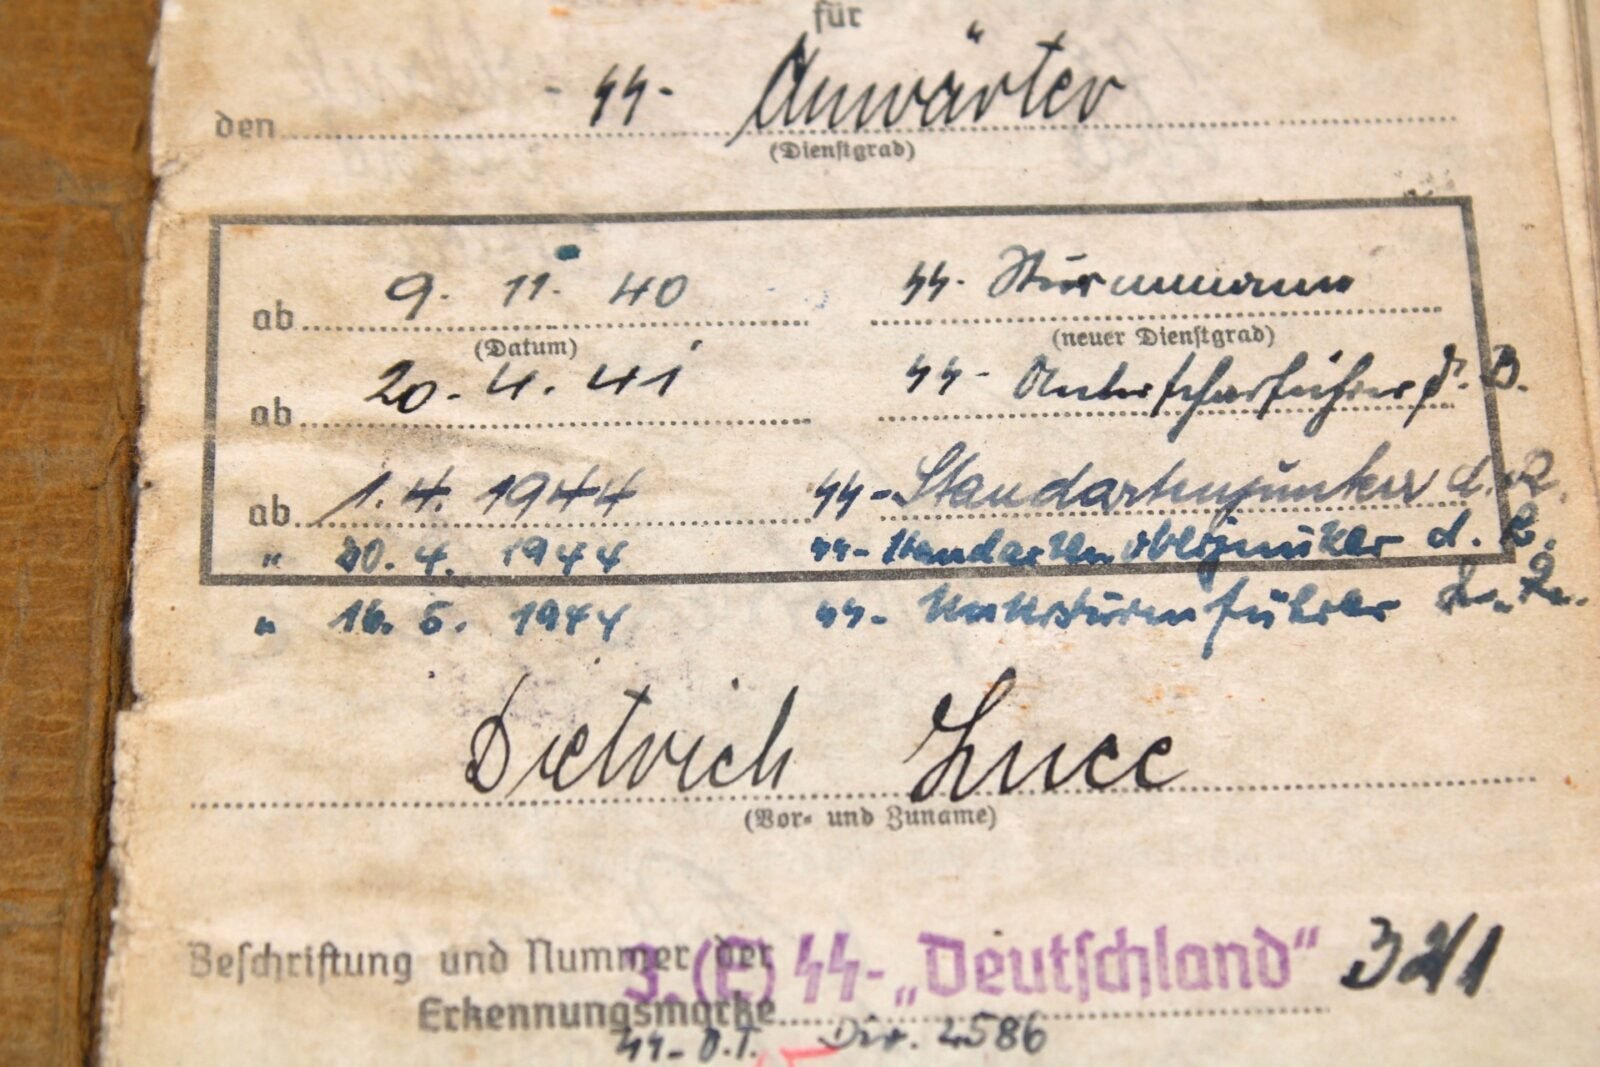 für
den - ᛋᛋ- Anwärter
(Dienstgrad)
ab 9. 11. 40 ᛋᛋ- Sturmmann
(Datum) (neuer Dienstgrad)
ab 20. 4. 41 ᛋᛋ- Unterscharführer d. B.
ab 1. 4. 1944 ᛋᛋ- Standartenjunker d. R.
" 20. 4. 1944 ᛋᛋ- Standartenoberjunker d. R.
" 16. 5. 1944 ᛋᛋ- Untersturmführer d. R.
Dietrich Luce
(Vor- und Zuname)
Beschriftung und Nummer der 3. (E) ᛋᛋ- „Deutschland“ 321
Erkennungsmarke
ᛋᛋ- D.T. Div. 2586